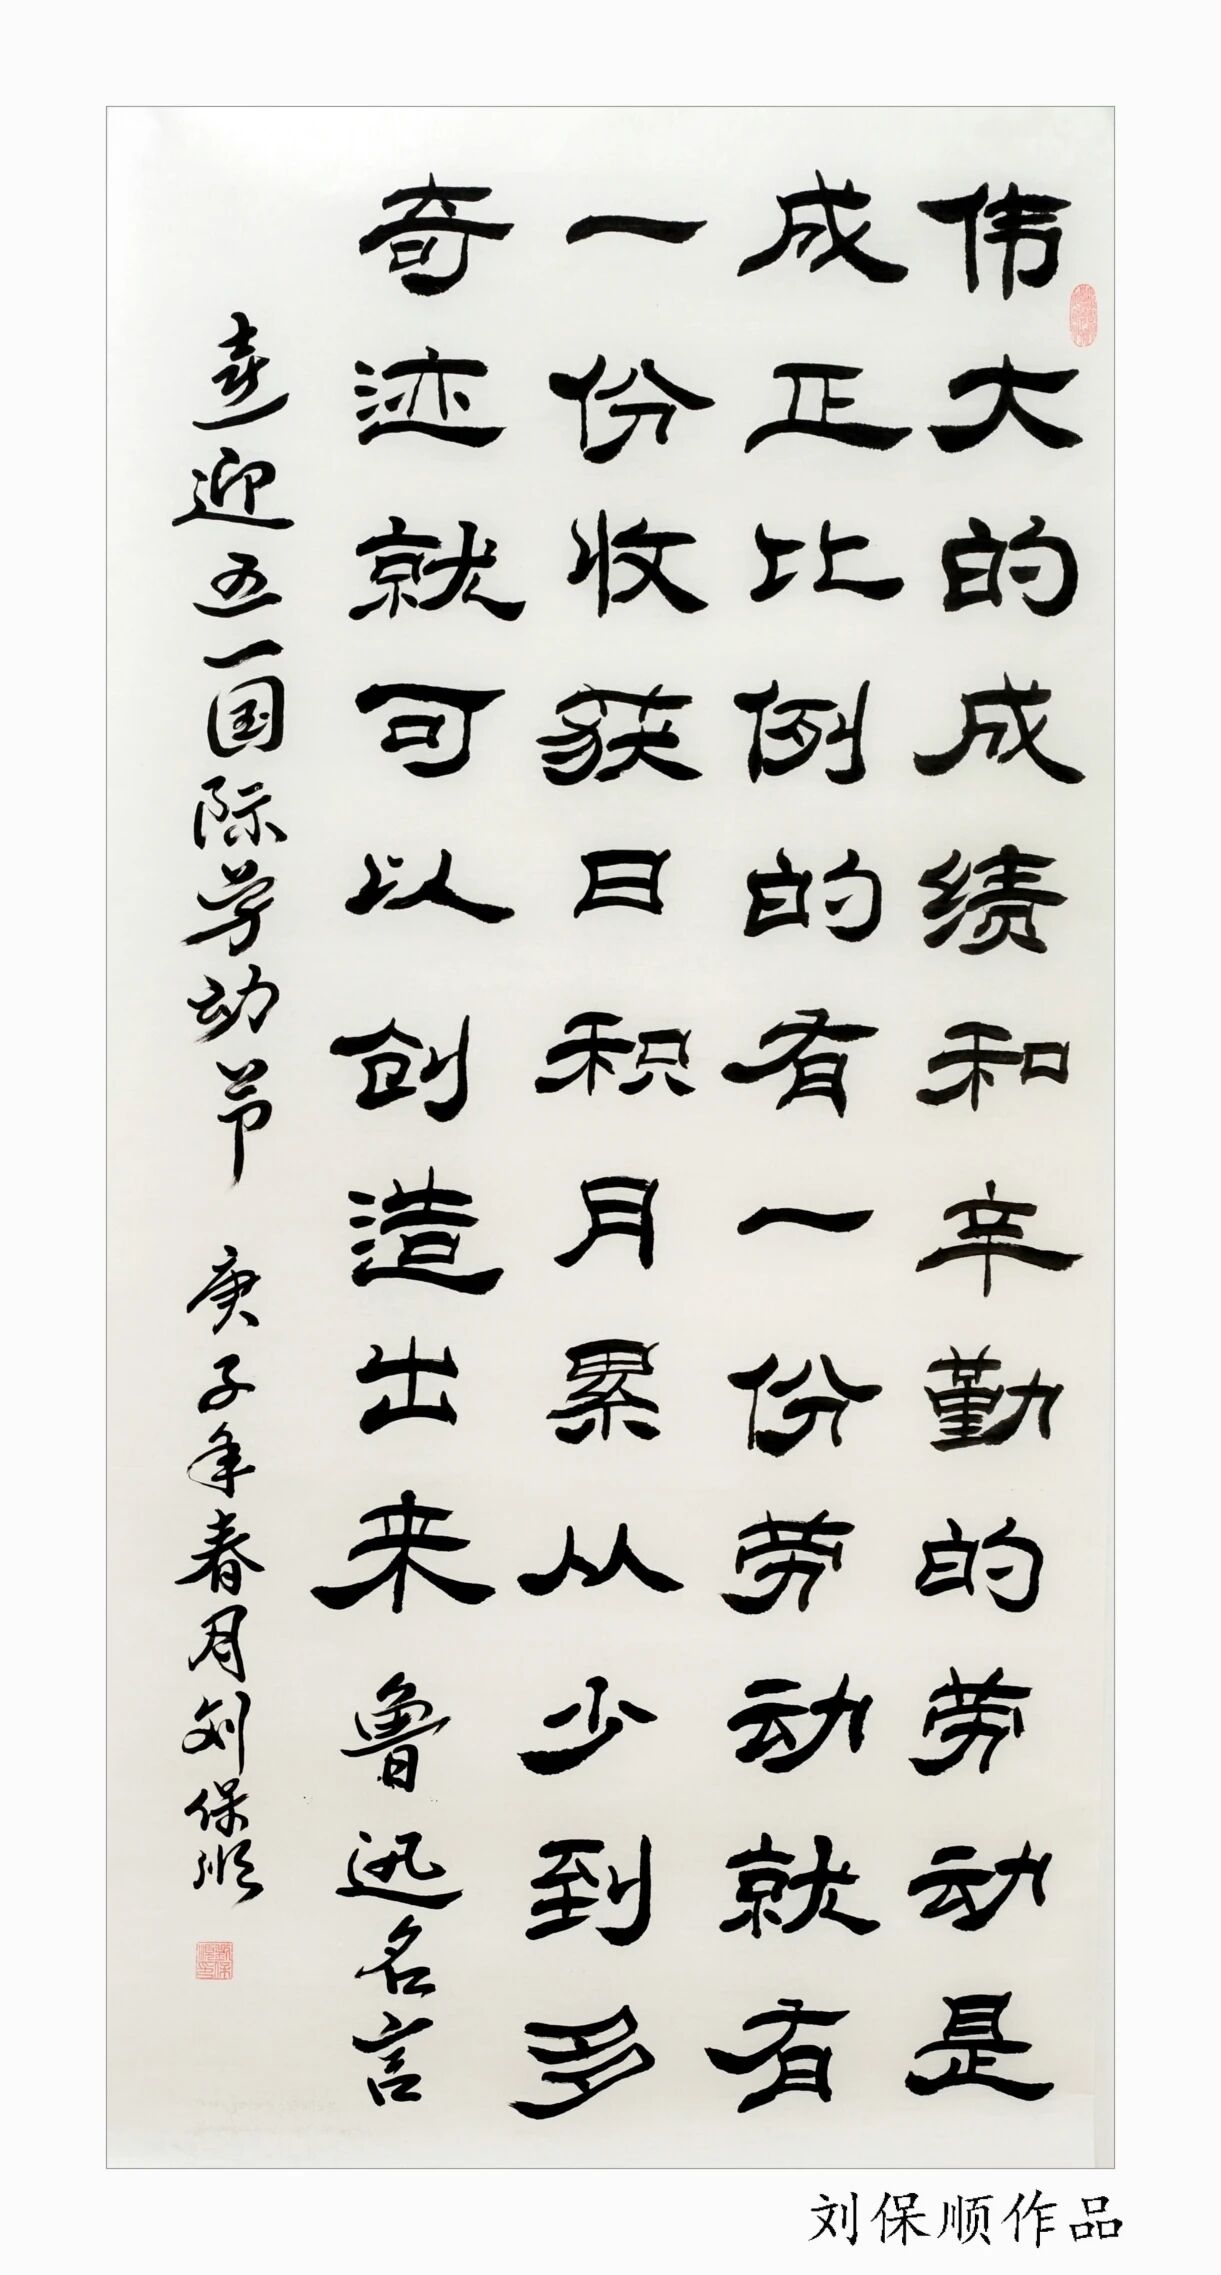 伟大的成绩和辛勤的劳动是
成正比例的有一份劳动就有
一份收获日积月累从少到多
奇迹就可以创造出来鲁迅名言
喜迎五一国际劳动节 庚子年春月刘保顺
刘保顺作品